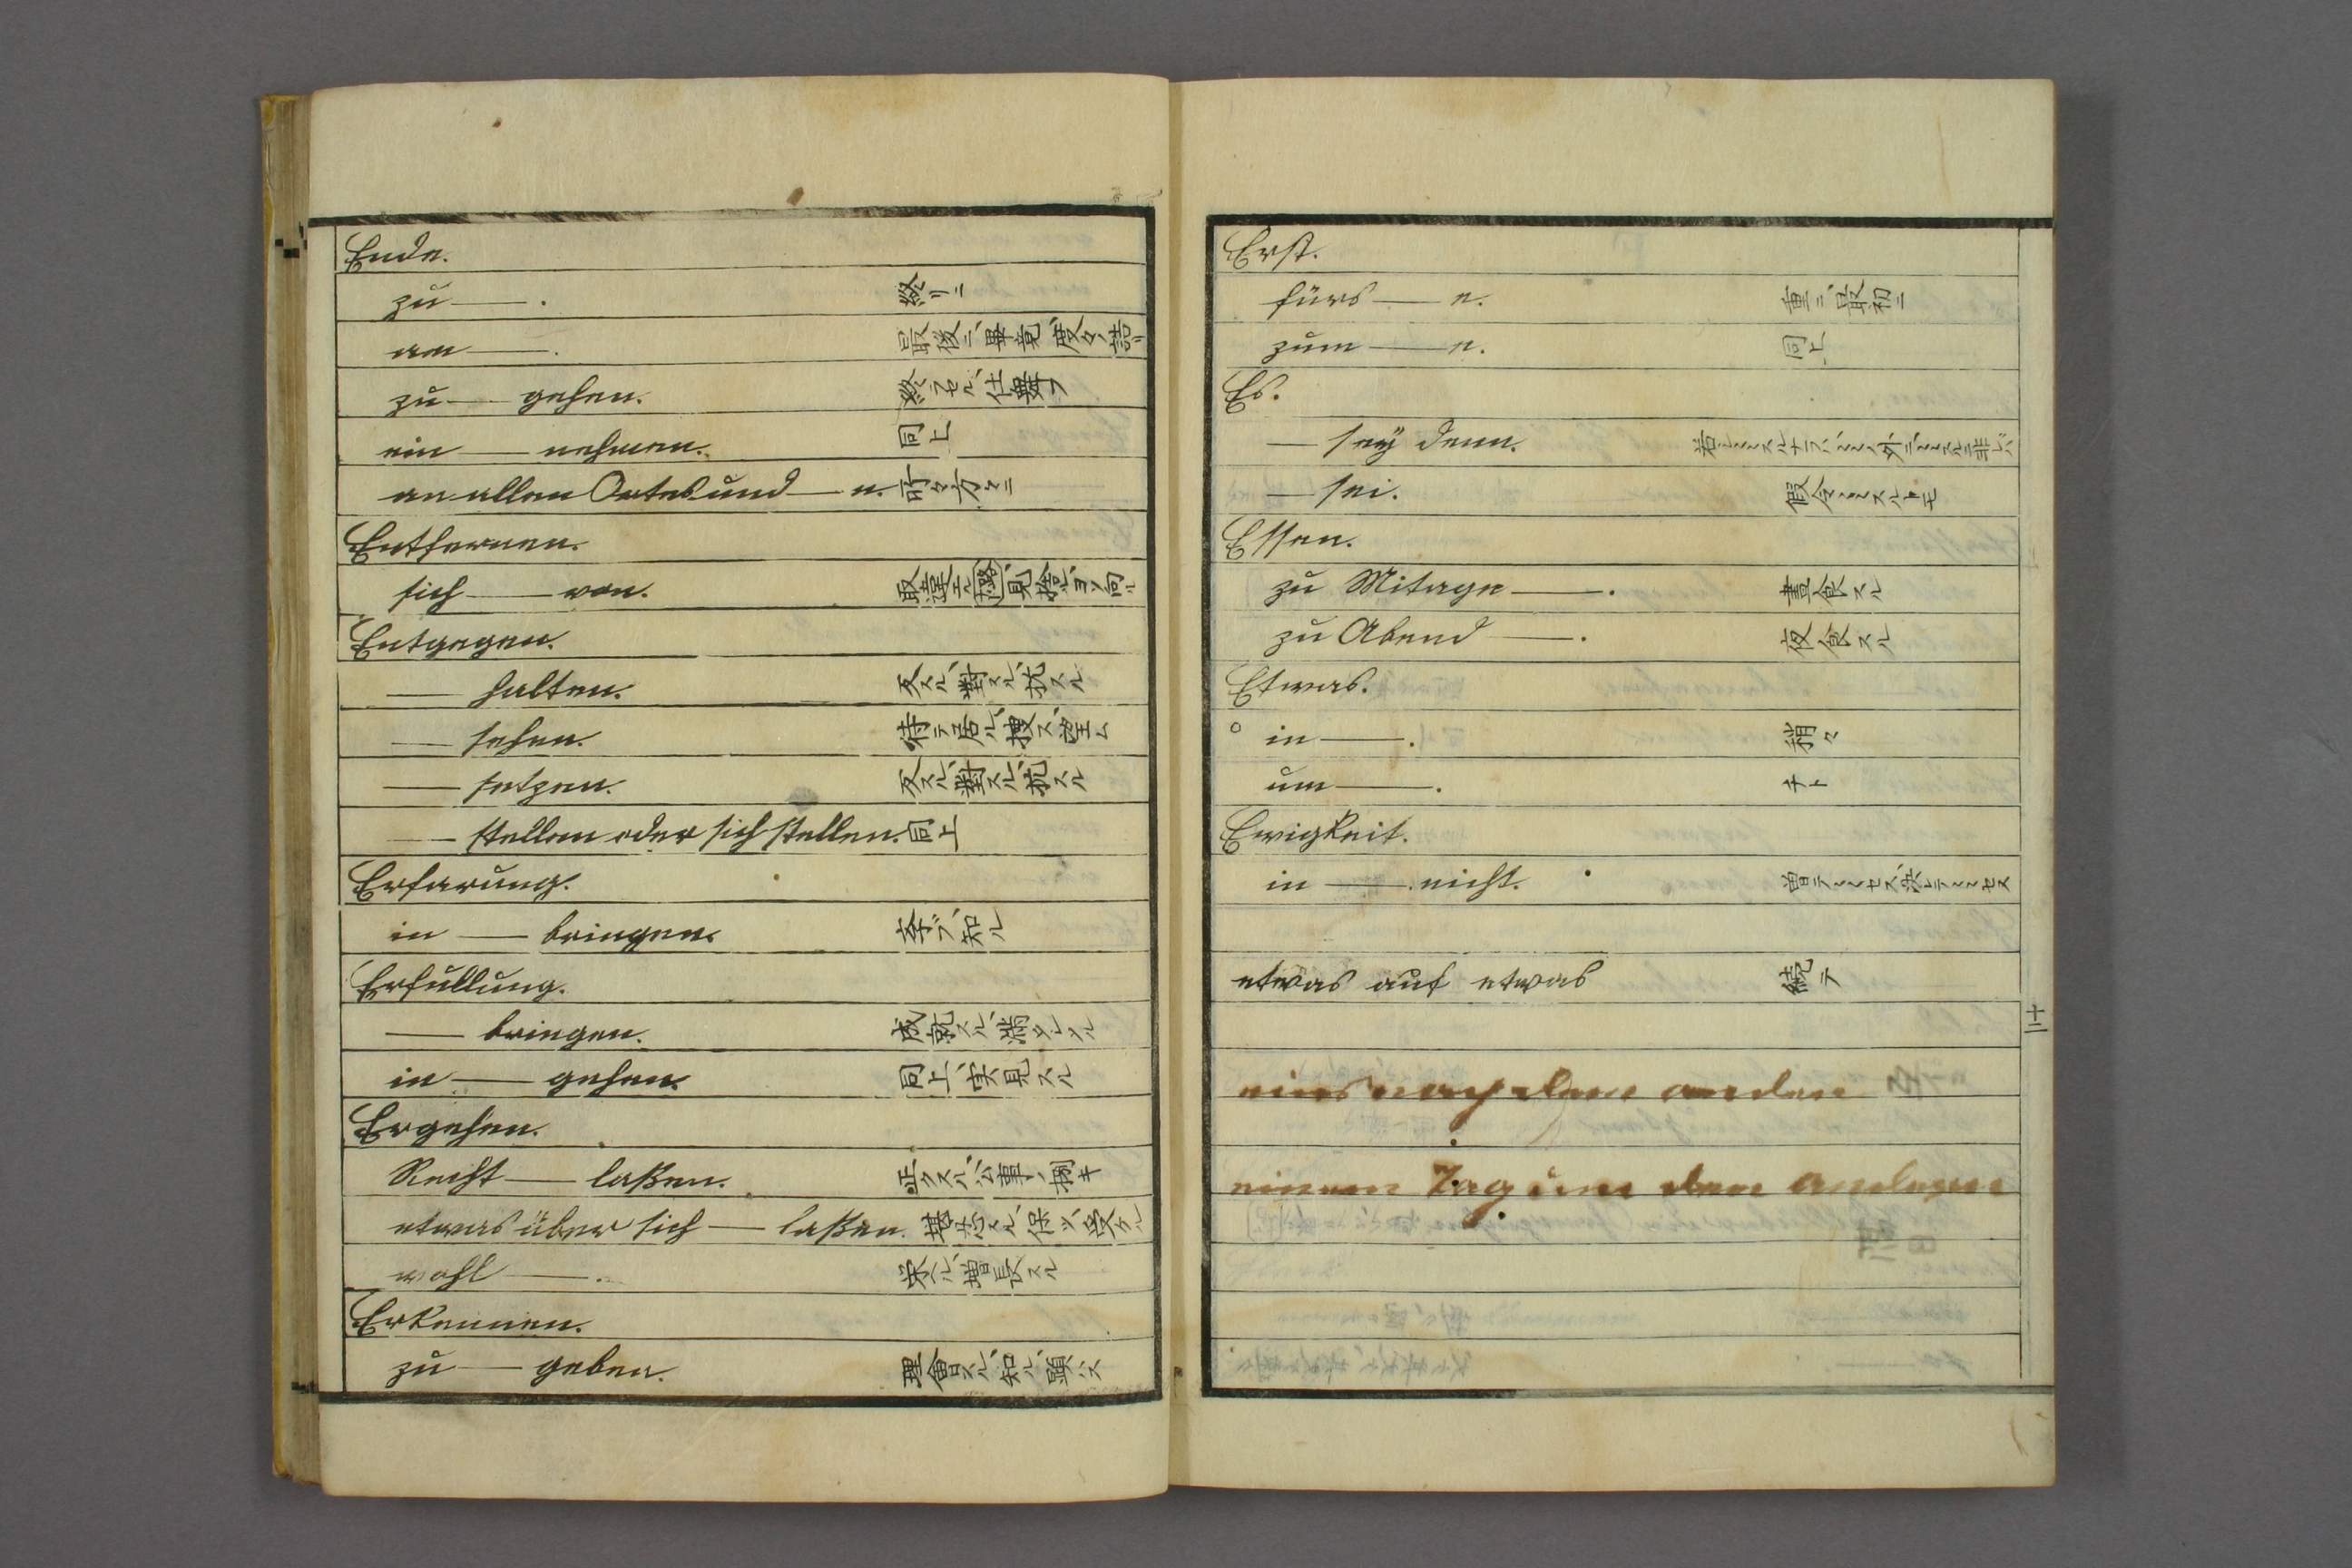 Ende.
zu —. 終リニ
am —. 最後ニ、畢竟、
zu — gehen. 終ヲル、仕舞フ
ein — nehmen. 同上
an allen Orten und — n. 所々方々ニ
Entfernen.
sich — von.
Entgegen.
— halten. 反スル、對スル、抗スル
— sehen. 待テ居ル、捜ス、望ム
— setzen. 反スル、對スル、抗スル
— stellen oder sich stellen. 同上
Erfarung.
in — bringen. 学ブ、知ル
Erfullung.
— bringen. 成就スル、
in — gehen. 同上、実見スル
Ergehen.
Recht — laßen. 正クスル、公事ノ
etwas über sich — laßen.
wohl —. 栄ヘル、増長スル
Erkennen.
zu — geben. 理會スル、知ル、顕ハス
Erst.
fürs — e. 重ニ、最初ニ
zum — e. 同上
Es.
— seÿ denn.
— sei. 假令〻〻スルトモ
Essen.
zu Mitage —. 晝食スル
zu Abend —. 夜食スル
Etwas.
in —. 稍々
um —.
Ewigkeit.
in — nicht. 曽テ〻〻セズ、决シテ〻〻セズ
etwas auf etwas 続テ
二十
eins nach dem anden
einem Tag um den anderen